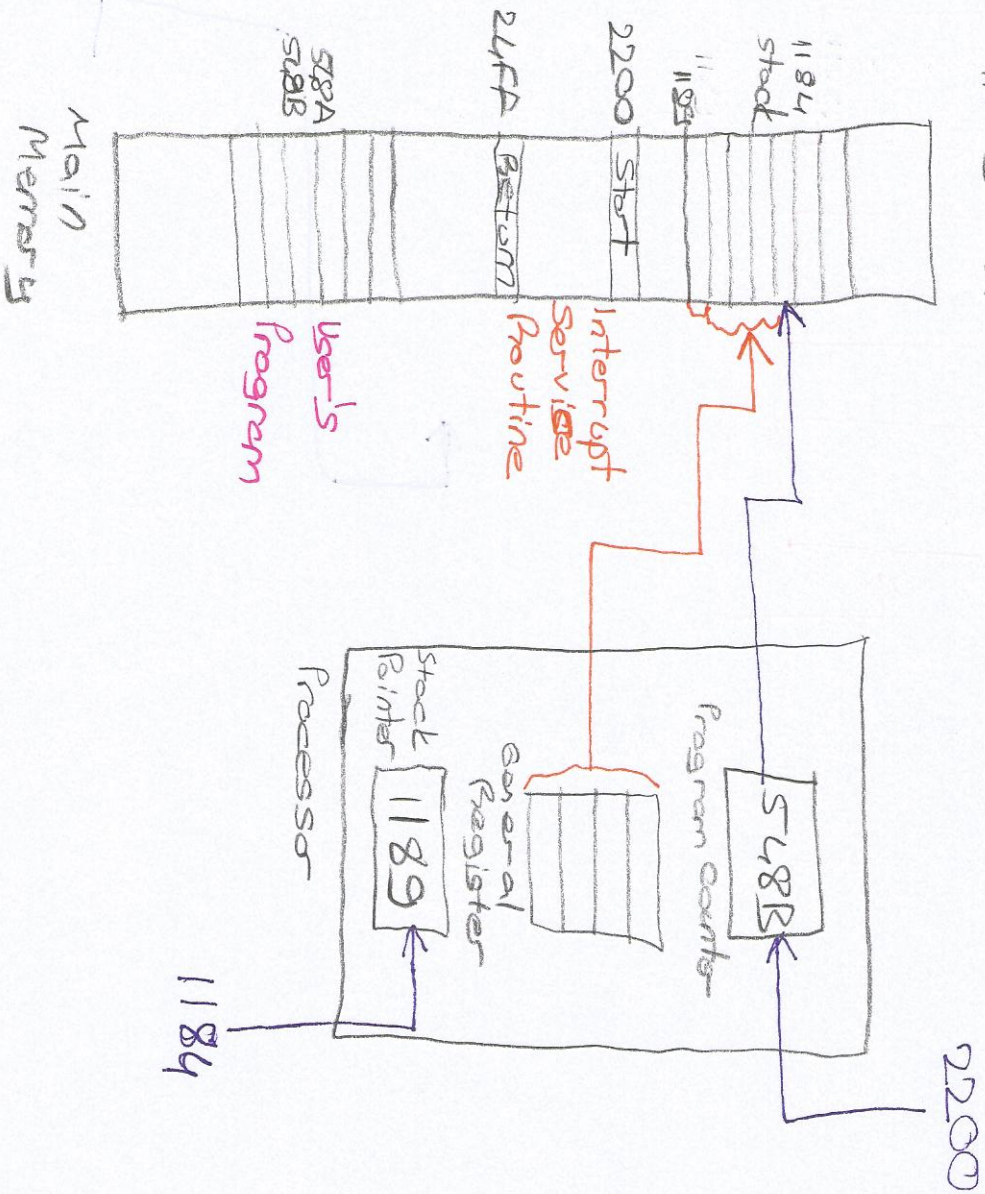 1184
stack
1189
2200
Start
24FF
Return
548A
548B
Main
Memory
Interrupt
Service
Routine
User's
Program
Program Counter
548B
General
Register
Stack
Pointer
1189
Processor
2200
1184